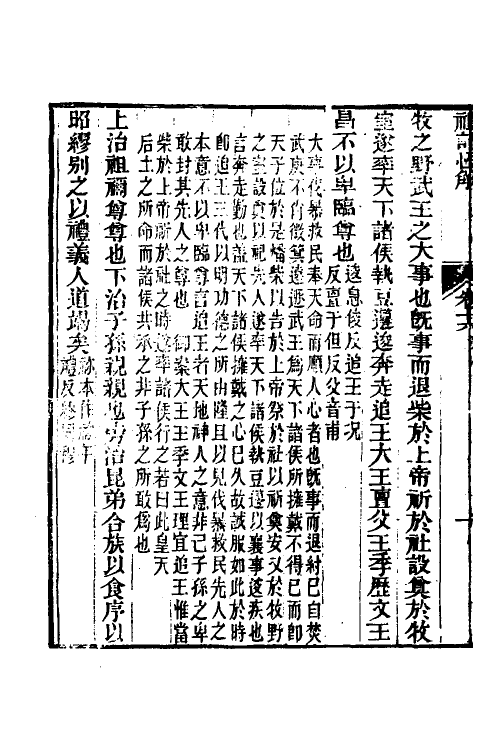 禮記
卷十六
牧之野武王之大事也旣事而退柴於上帝祈於社設奠於牧
室遂率天下諸侯執豆籩逡奔走追王大王亶父王季歷文王
昌不以卑臨尊也
逡息俊反追王于況
反亶于但反父音甫
大事伐暴救民奉天命而順人心者也旣事而退紂巳自焚
武庚不肖微箕遯逊武王爲天下諸侯所擁戴不得巳而卽
天子位於是燔柴以告於上帝祭於社以祈奠安又於牧野
之室設奠以祀先人遂率天下諸侯執豆籩以襄事逡疾也
言奔走勤也蓋天下諸侯擁戴之心巳久故誠服如此於時
卽追王三代以明功德之所由隆且以見伐暴救民先人之
本意不以卑臨尊言追王者天地神人之意非己子孫之卑
敢封其先人之尊也　御案大王王季文王理宜追王惟當
柴於上帝祈於社之時逡率諸侯行之若曰此皇天
后土之所命而諸侯共承之非子孫之所敢爲也
上治祖禰尊尊也下治子孫親親也旁治昆弟合族以食序以
昭繆別之以禮義人道竭矣
禰本作
禮反繆